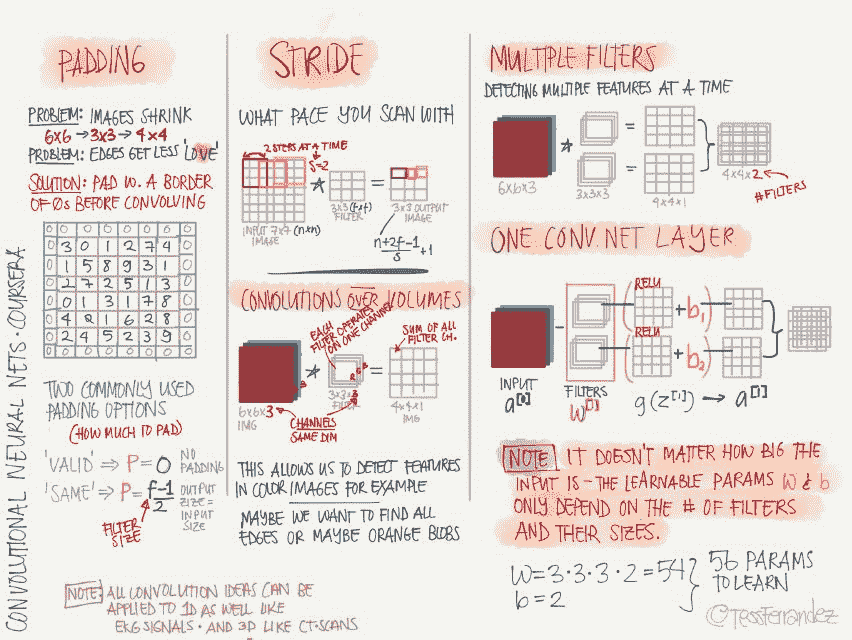 CONVOLUTIONAL NEURAL NETS · COURSERA
PADDING
PROBLEM: IMAGES SHRINK
6x6 → 3x3 → 4x4
PROBLEM: EDGES GET LESS 'LOVE'
SOLUTION: PAD W. A BORDER
OF 0s BEFORE CONVOLVING
0 0 0 0 0 0 0 0
0 3 0 1 2 7 4 0
0 1 5 8 9 3 1 0
0 2 7 2 5 1 3 0
0 0 1 3 1 7 8 0
0 4 2 1 6 2 8 0
0 2 4 5 2 3 9 0
0 0 0 0 0 0 0 0
TWO COMMONLY USED
PADDING OPTIONS
(HOW MUCH TO PAD)
'VALID' ⇒ P=0 NO
PADDING
'SAME' ⇒ P= f-1/2 OUTPUT
SIZE =
INPUT
SIZE
FILTER
SIZE
NOTE: ALL CONVOLUTION IDEAS CAN BE
APPLIED TO 1D AS WELL LIKE
EKG SIGNALS · AND 3D LIKE CT-SCANS
STRIDE
WHAT PACE YOU SCAN WITH
2 STEPS AT A TIME
S=2
* =
INPUT 7x7 (nxn)
IMAGE
3x3 (fxf)
FILTER
3x3 OUTPUT
IMAGE
n+2f-1/s +1
CONVOLUTIONS OVER VOLUMES
EACH
FILTER OPERATES
ON ONE CHANNEL
SUM OF ALL
FILTER CH.
* =
R G B
6x6x3
IMG
3x3x3
FILTER
4x4x1
IMG
CHANNELS
SAME DIM
THIS ALLOWS US TO DETECT FEATURES
IN COLOR IMAGES FOR EXAMPLE
MAYBE WE WANT TO FIND ALL
EDGES OR MAYBE ORANGE BLOBS
MULTIPLE FILTERS
DETECTING MULTIPLE FEATURES AT A TIME
* =
=
6x6x3
3x3x3
4x4x1
4x4x2
#FILTERS
ONE CONV. NET LAYER
RELU
( + b1 )
RELU
( + b2 )
INPUT
a[0]
FILTERS
W[1]
g(z[1]) → a[1]
NOTE IT DOESN'T MATTER HOW BIG THE
INPUT IS - THE LEARNABLE PARAMS W & b
ONLY DEPEND ON THE # OF FILTERS
AND THEIR SIZES.
W=3·3·3·2=54
b=2
56 PARAMS
TO LEARN
@TessFerrandez